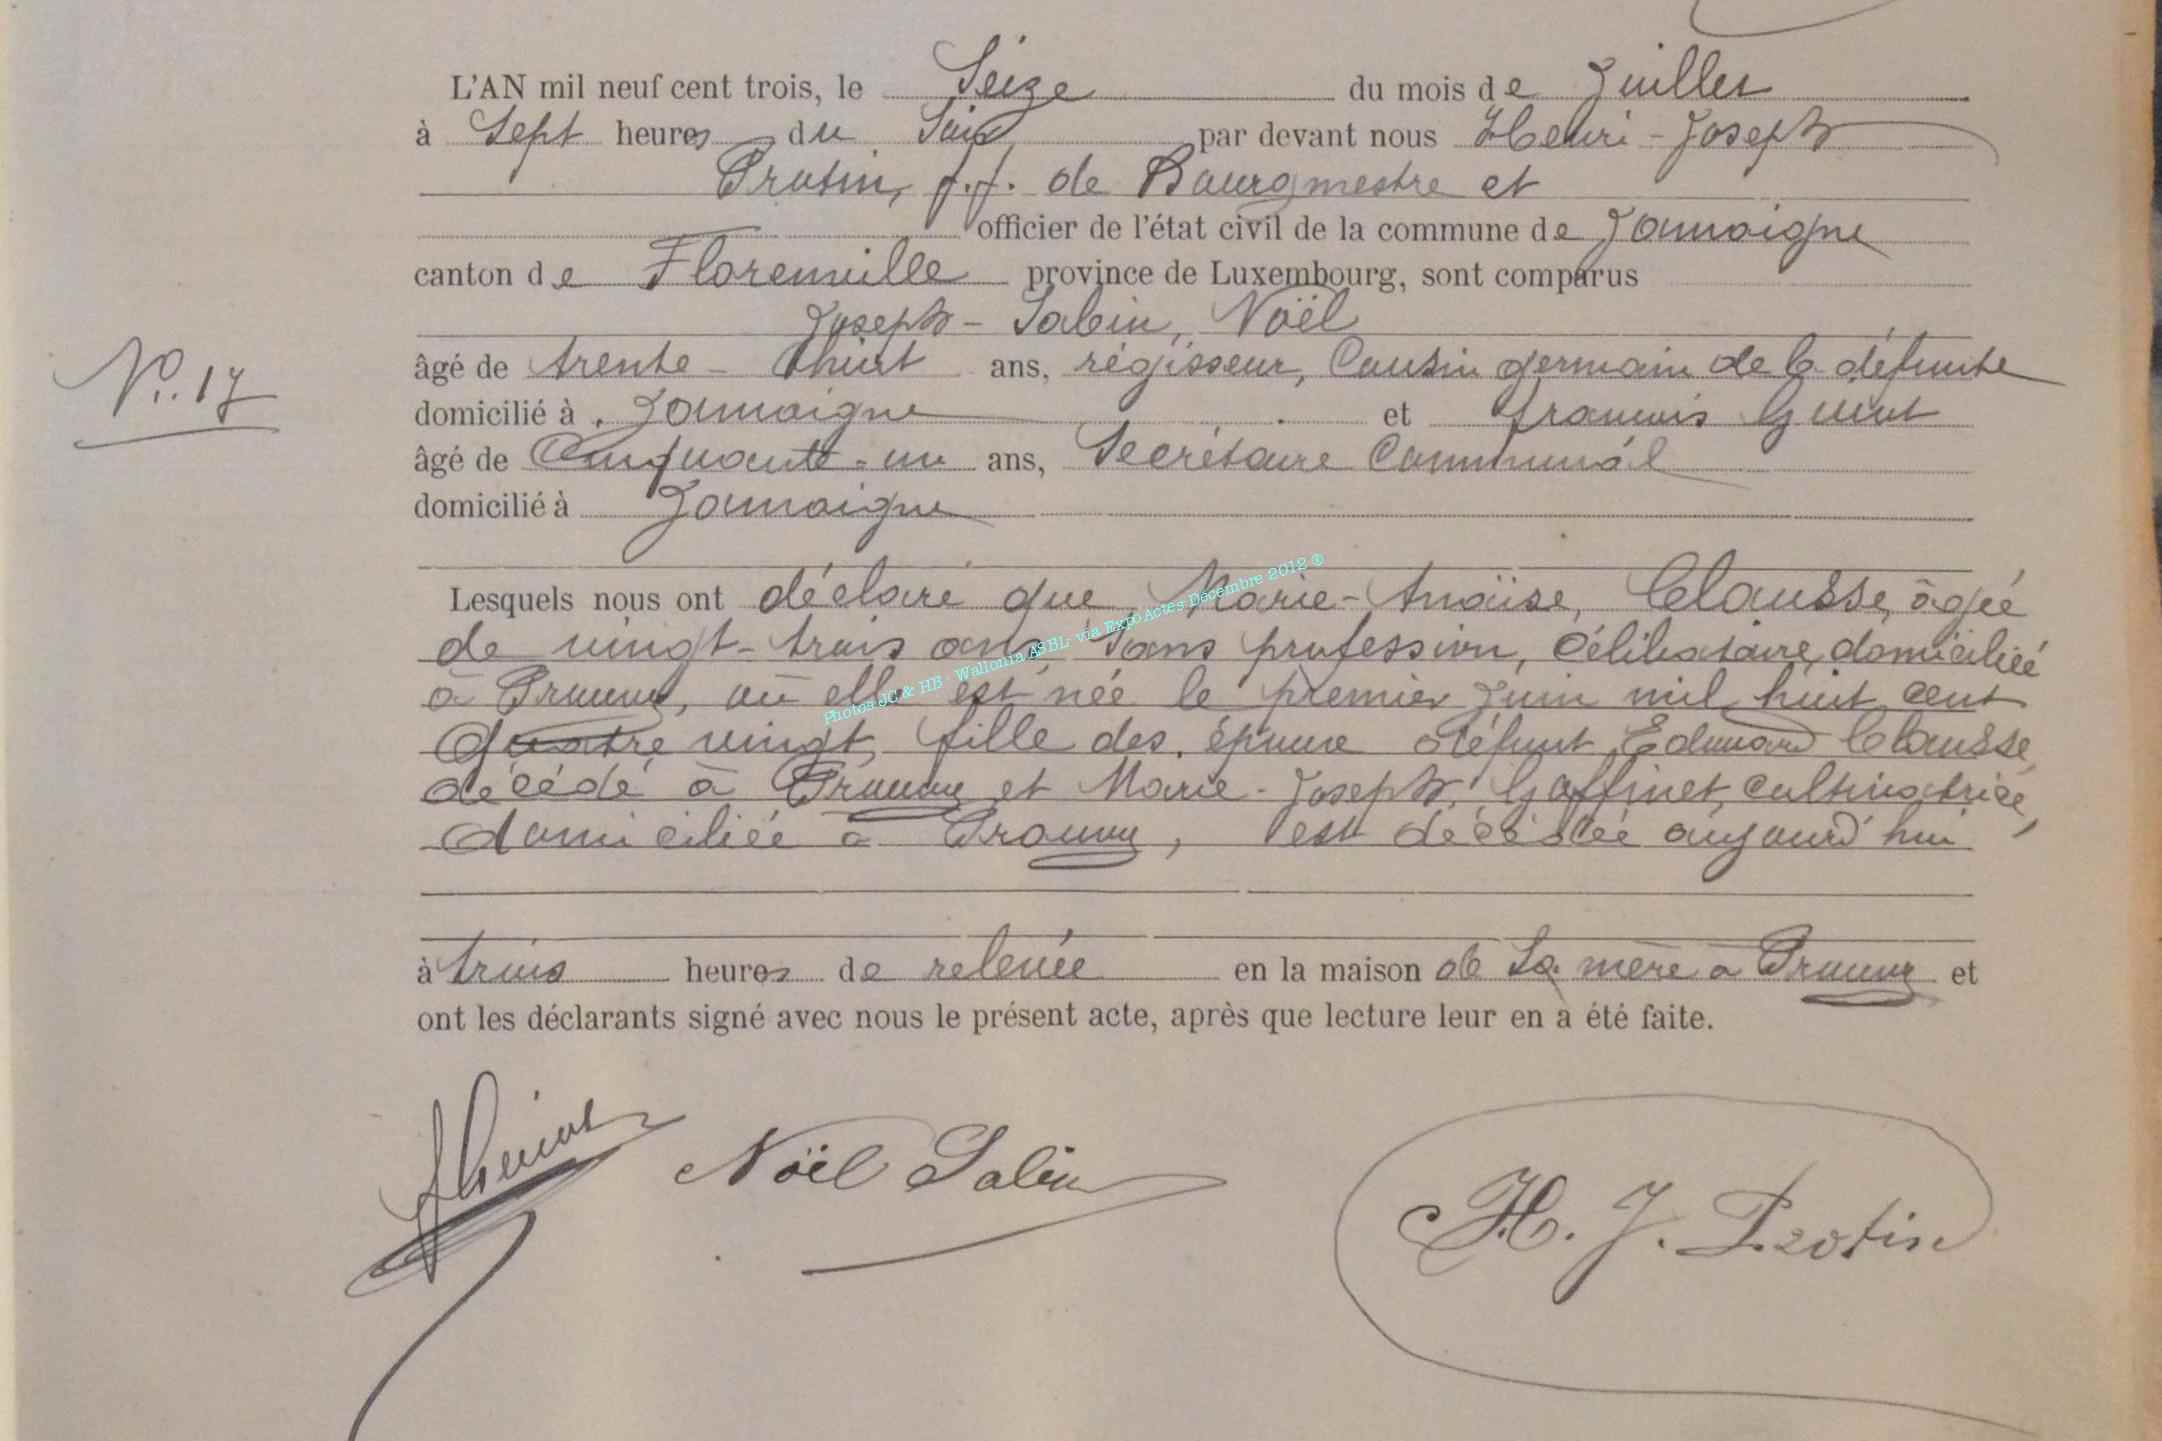 L'AN mil neuf cent trois, le Seize du mois de Juillet
à Sept heures du Soir par devant nous Henri-Joseph
Protin, f.f. de Bourgmestre et
officier de l'état civil de la commune de Jamoigne
canton de Florenville province de Luxembourg, sont comparus
Joseph-Sabin, Noël
N°. 17
âgé de trente-huit ans, régisseur, Cousin germain de la défunte
domicilié à Jamoigne et François Guiot
âgé de Cinquante-un ans, Secrétaire Communal
domicilié à Jamoigne
Lesquels nous ont déclaré que Marie-Anaïse, Clausse, âgée
de vingt-trois ans, sans profession, célibataire, domiciliée
à Prouvy, où elle est née le premier Juin mil huit cent
quatre vingt, fille des époux défunt Edouard Clausse,
décédé à Prouvy et Marie-Joseph Goffinet, cultivatrice,
domiciliée à Prouvy, est décédée aujourd'hui
à trois heures de relevée en la maison de Sa mère à Prouvy et
ont les déclarants signé avec nous le présent acte, après que lecture leur en a été faite.
FGuiot Noël Sabin H. J. Protin
Photos JC & HB - Wallonia ASBL via ExpoActes Décembre 2012 ®